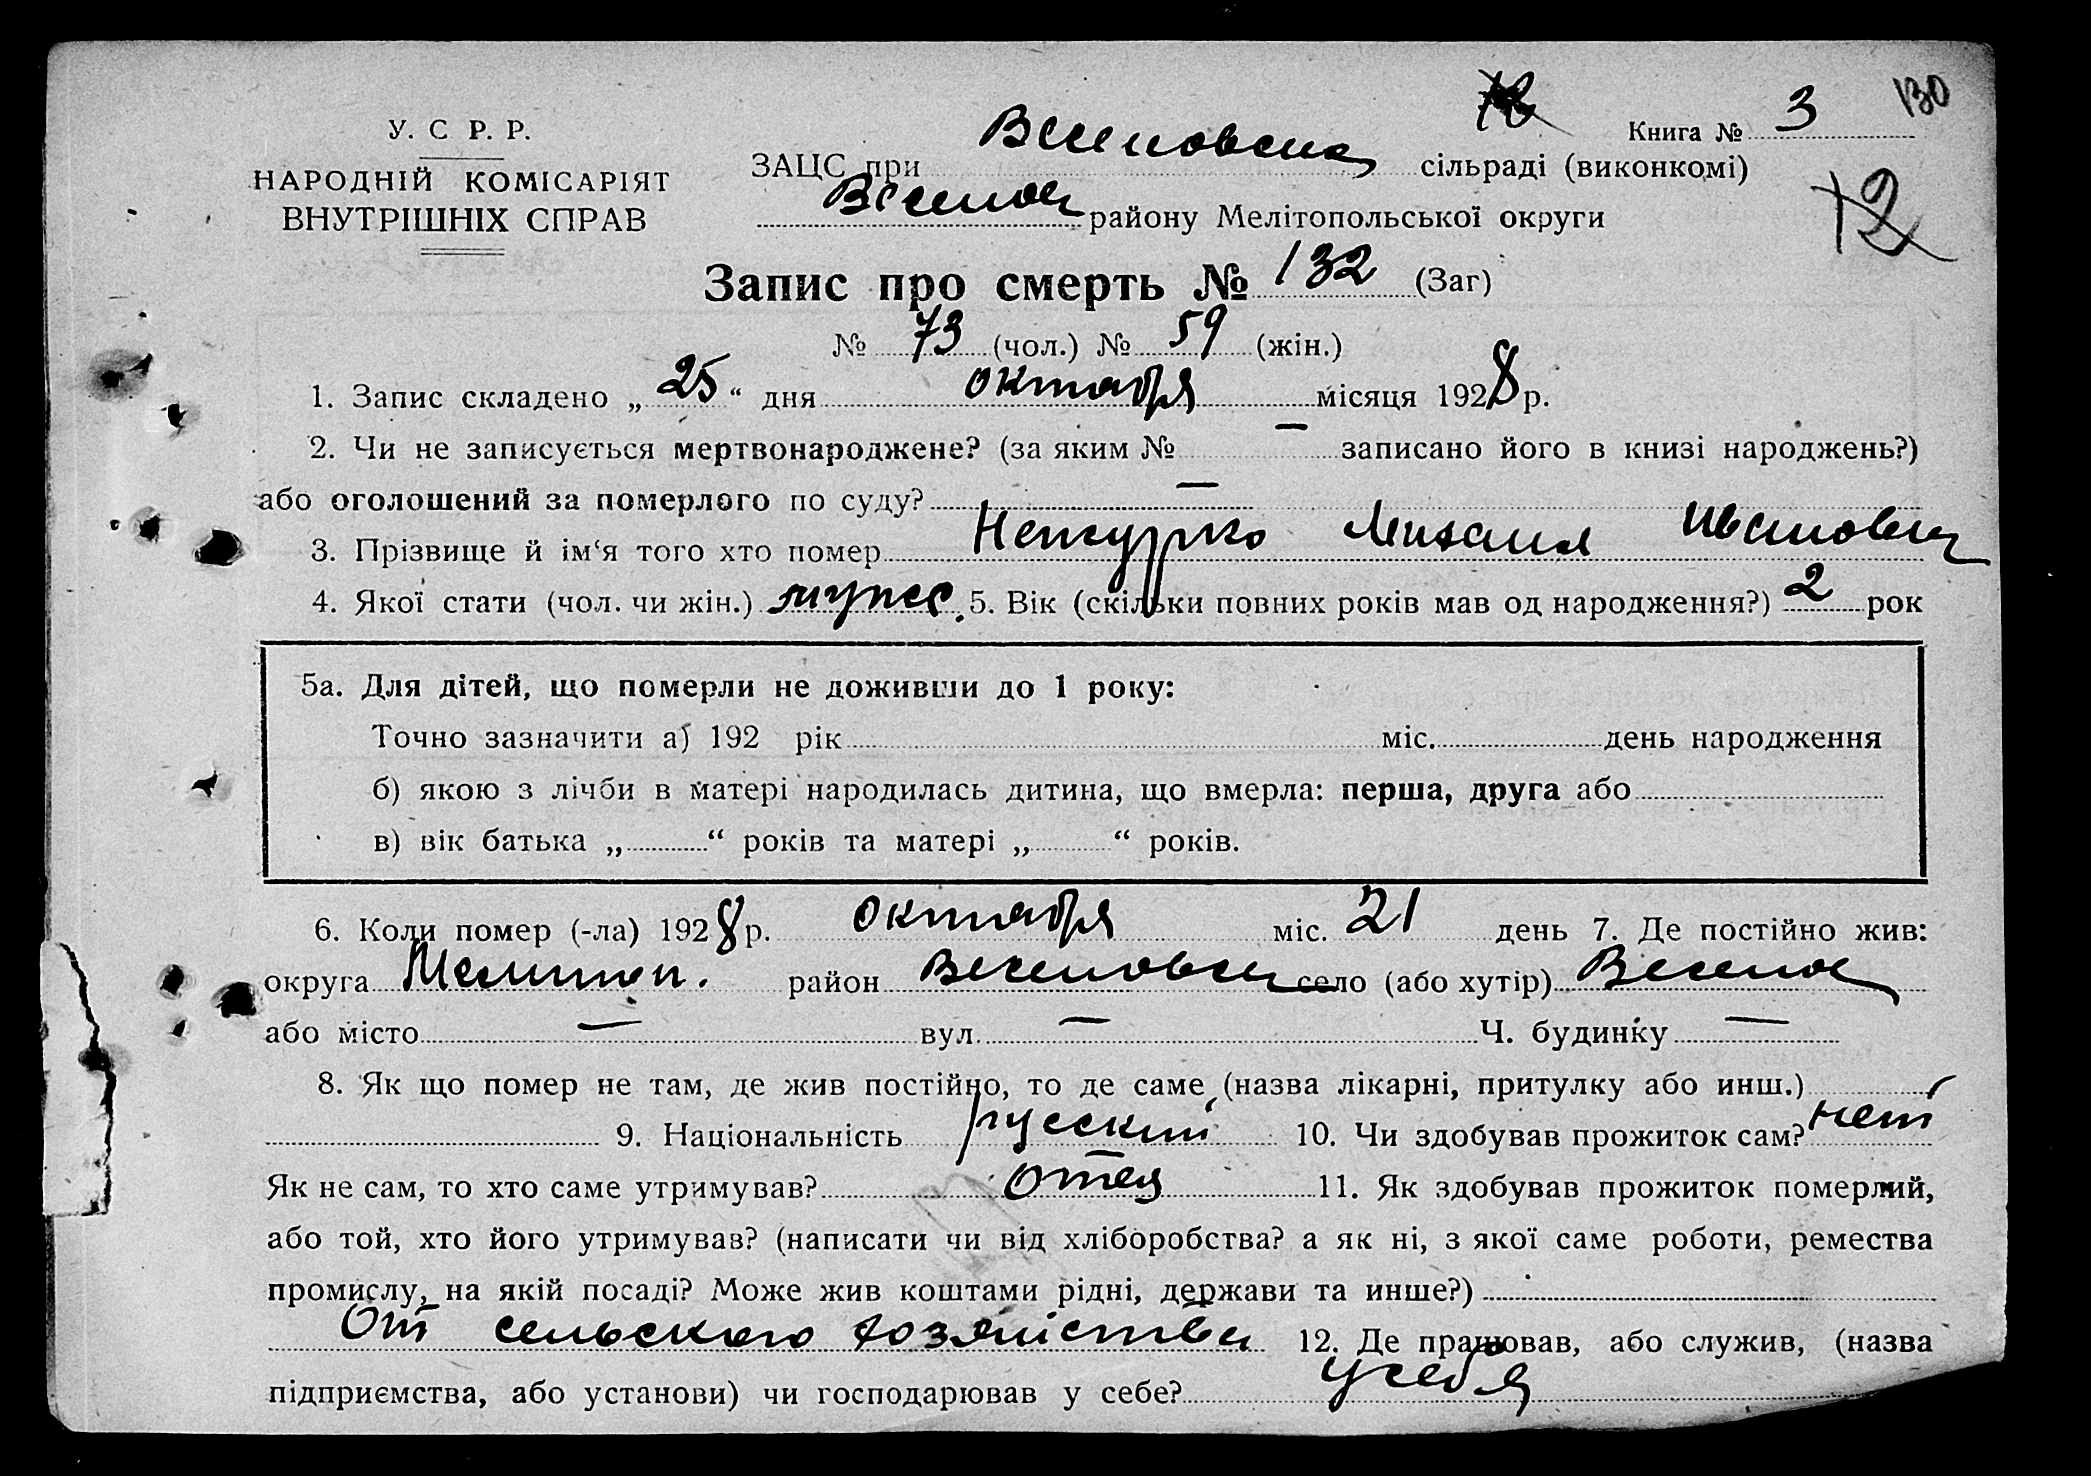 130
Книга № 3
У. С Р. Р.
НАРОДНІЙ КОМІСАРІЯТ
ВНУТРІШНІХ СПРАВ
ЗАЦС при Веселовском сільраді (виконкомі)
Веселов районну Мелітопольської округи
12
Запис про смерть № 132 (Заг)
№ 73 (чол.) № 59 (жін.)
1. Запис складено „ 25 “ дня октября місяця 1928 р.
2. Чи не записується мертвонароджене? (за яким № — записано його в книзі народжень?)
або оголошений за померлого по суду? —
3. Прізвище й ім‘я того хто помер Михаил Иванович
4. Якої стати (чол. чи жін.) мужес. 5. Вік (скільки повних років мав од народження?) 2 рок
5а. Для дітей, що померли не доживши до 1 року:
Точно зазначити а) 192 рік міс. день народження
б) якою з лічби в матері народилась дитина, що вмерла: перша, друга або
в) вік батька „ “ років та матері „ “ років.
6. Коли помер (-ла) 1928 р. октября міс. 21 день 7. Де постійно жив:
округа Мелитоп. район Веселовск село (або хутір) Веселое
або місто — вул. — Ч. будинку —
8. Як що помер не там, де жив постійно, то де саме (назва лікарні, притулку або инш.)
9. Національність русский 10. Чи здобував прожиток сам? нет
Як не сам, то хто саме утримував? отец 11. Як здобував прожиток померлий,
або той, хто його утримував? (написати чи від хліборобства? а як ні, з якої саме роботи, ремества
промислу, на якій посаді? Може жив коштами рідні, держави та инше?)
От сельского хозяйства 12. Де працював, або служив, (назва
підприємства, або установи) чи господарював у себе? у себя